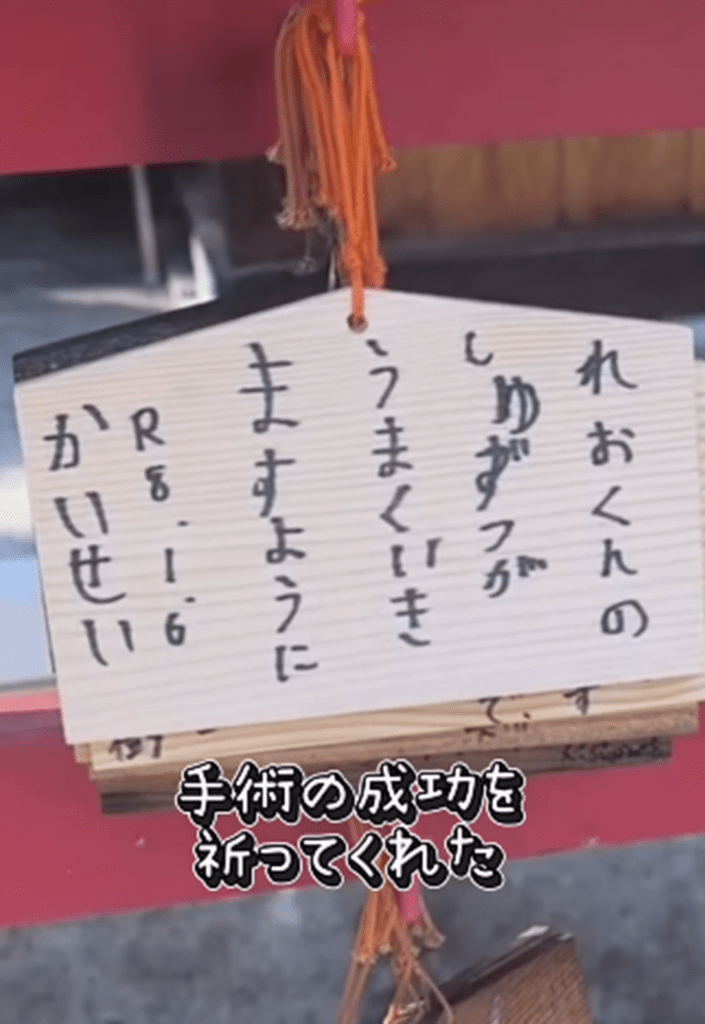 れおくんの
しゆずつが
うまくいき
ますように
R8.1.6
かいせい
手術の成功を
祈ってくれた